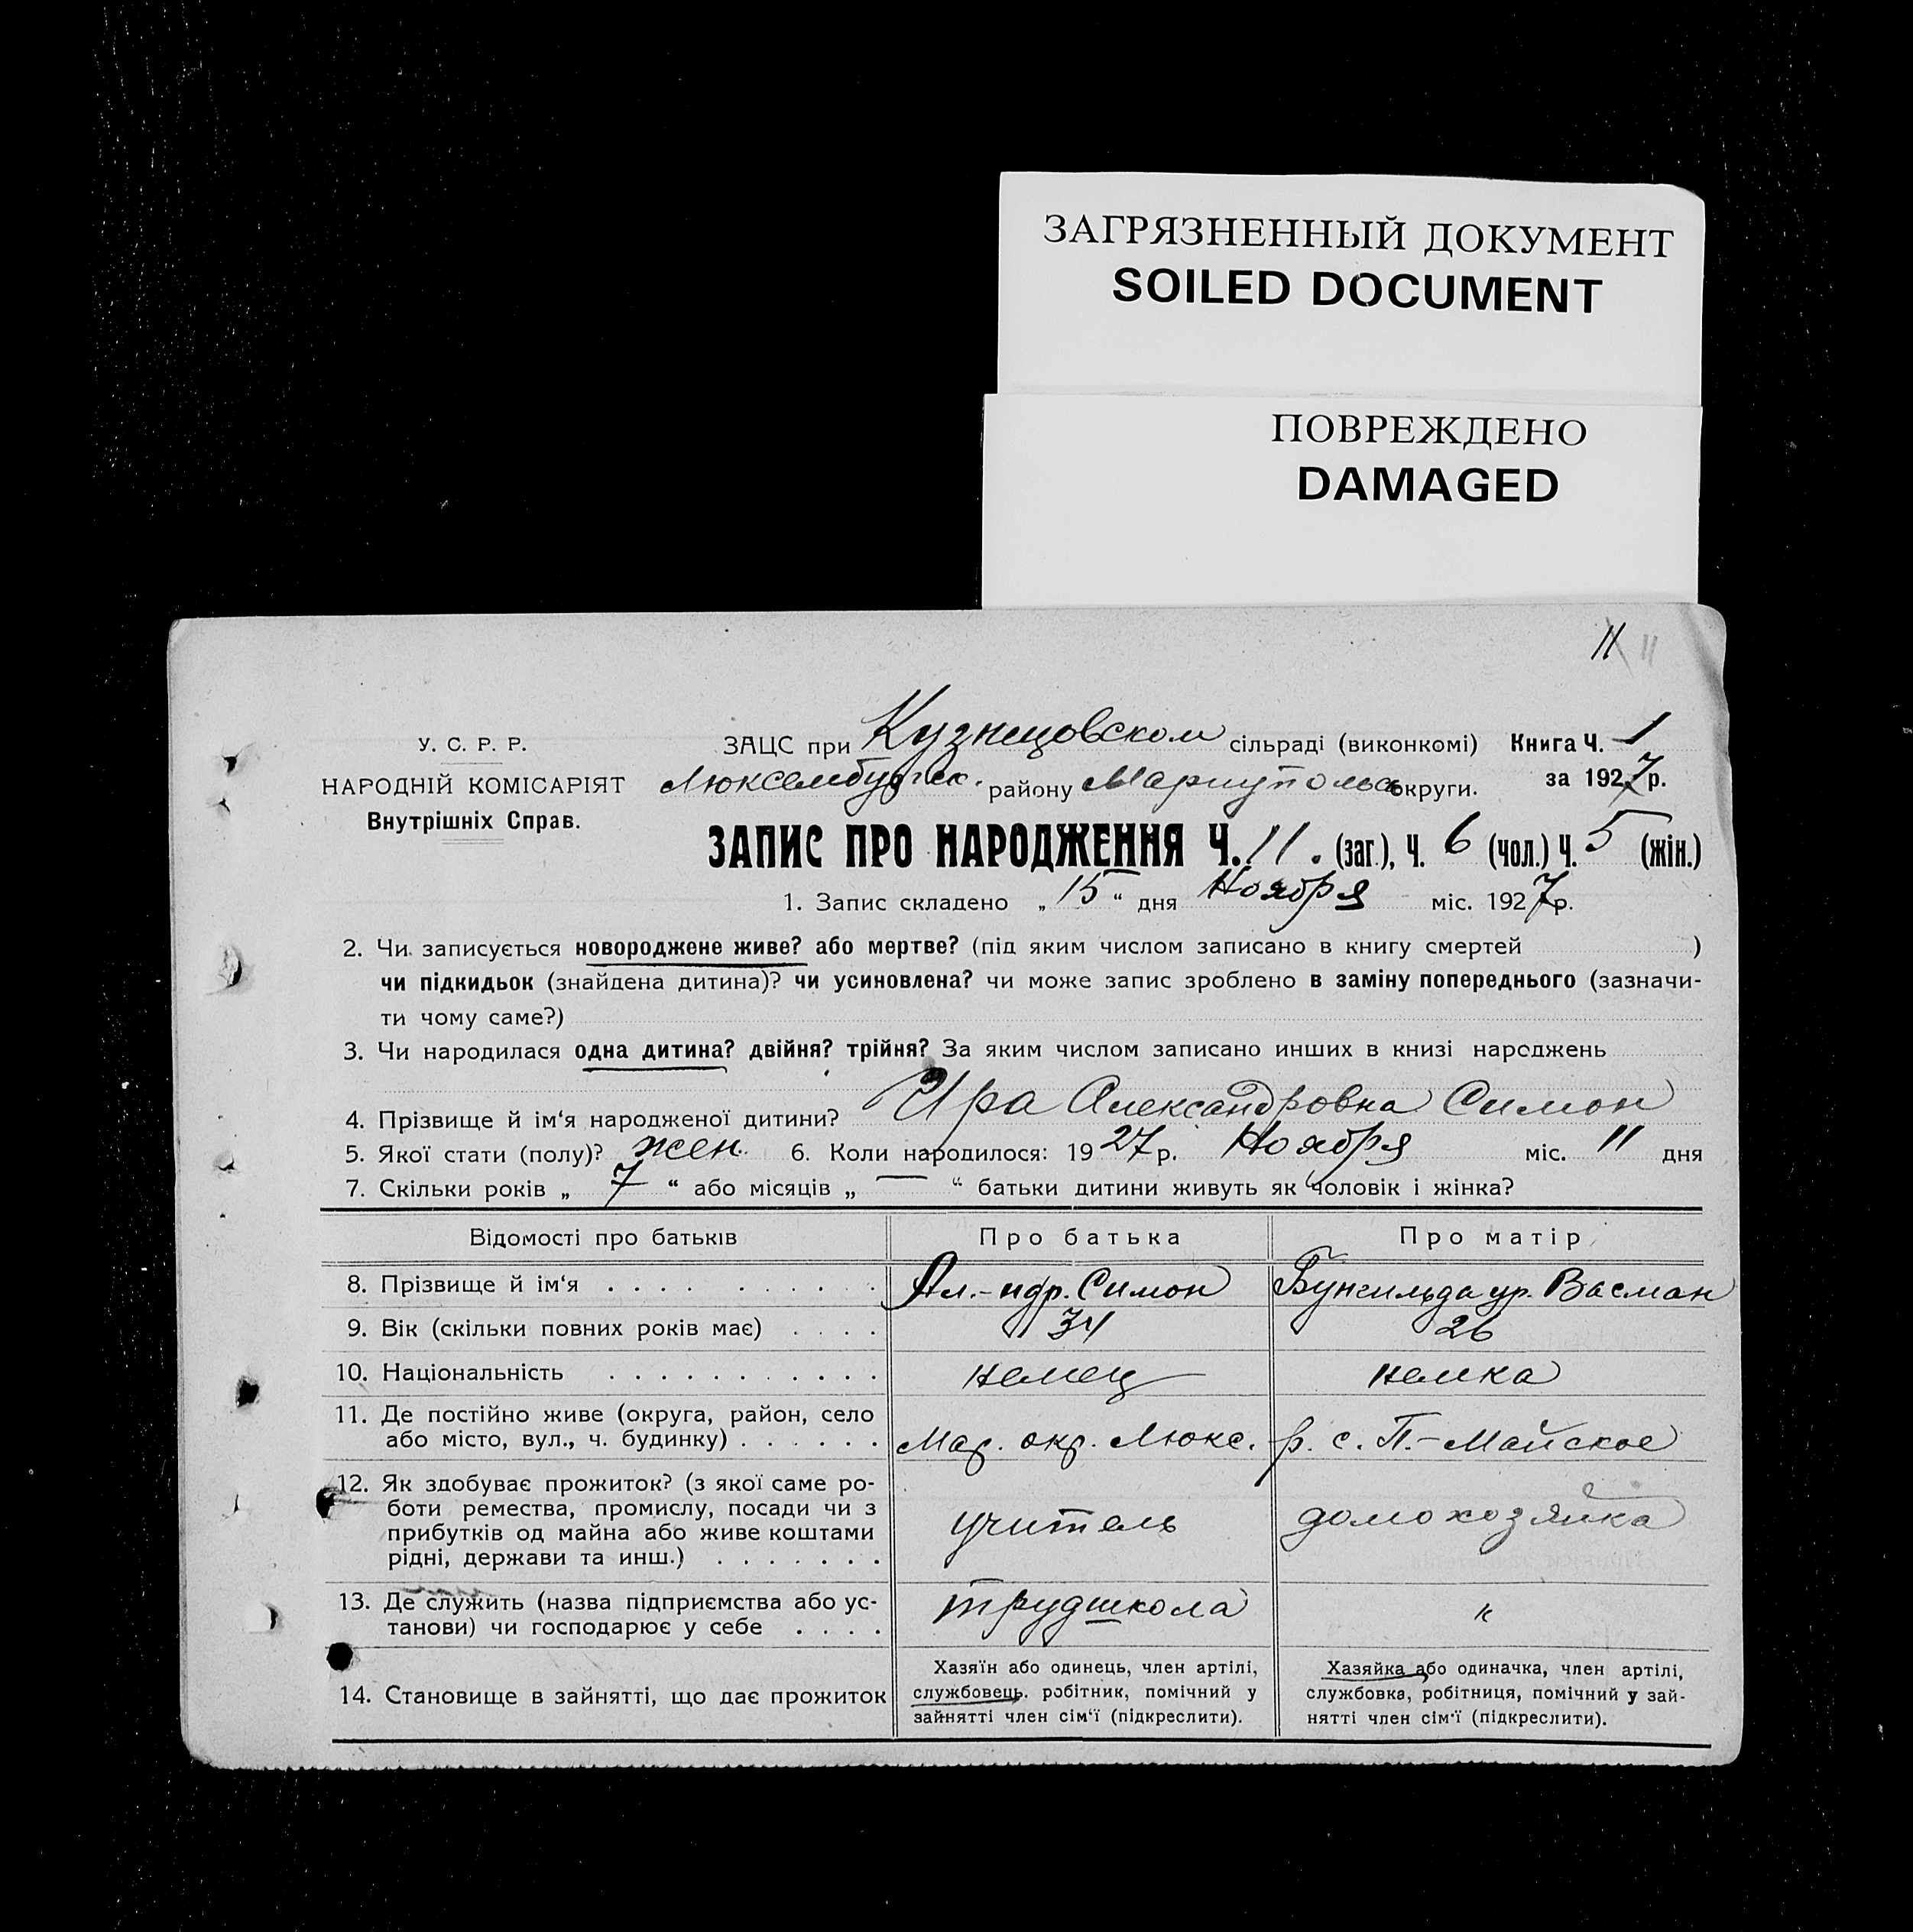 ЗАГРЯЗНЕННЫЙ ДОКУМЕНТ
SOILED DOCUMENT
ПОВРЕЖДЕНО
DAMAGED
11 11
У. С. Р. Р.
НАРОДНІЙ КОМІСАРІЯТ
Внутрішніх Справ.
ЗАЦС при Кузнецовском сільраді (виконкомі) Книга Ч. 1
Люксембургск. району Мариупольск округи. за 1927 р.
ЗАПИС ПРО НАРОДЖЕННЯ Ч. 11. (заг.), Ч. 6 (чол.) Ч. 5 (жін.)
1. Запис складено „ 15 “ дня Ноября міс. 1927 р.
2. Чи записується новороджене живе? або мертве? (під яким числом записано в книгу смертей )
чи підкидьок (знайдена дитина)? чи усиновлена? чи може запис зроблено в заміну попереднього (зазначи-
ти чому саме?)
3. Чи народилася одна дитина? двійня? трійня? За яким числом записано инших в книзі народжень
4. Прізвище й ім‘я народженої дитини? Ира Александровна Симон
5. Якої стати (полу)? жен. 6. Коли народилося: 1927 р. Ноября міс. 11 дня
7. Скільки років „ 7 “ або місяців „ — “ батьки дитини живуть як чоловік і жінка?
Відомості про батьків Про батька Про матір
8. Прізвище й ім‘я Ал.-ндр. Симон ур. Васман
9. Вік (скільки повних років має) 34 26
10. Національність немец немка
11. Де постійно живе (округа, район, село
або місто, вул., ч. будинку) Мар. окр. Люкс. р. с. П.-Майское
12. Як здобуває прожиток? (з якої саме ро-
боти ремества, промислу, посади чи з
прибутків од майна або живе коштами
рідні, держави та инш.) учитель домохозяйка
13. Де служить (назва підприємства або ус-
танови) чи господарює у себе трудшкола "
14. Становище в зайнятті, що дає прожиток
Хазяїн або одинець, член артілі,
службовець, робітник, помічний у
зайнятті член сім‘ї (підкреслити).
Хазяйка або одиначка, член артілі,
службовка, робітниця, помічний у зай-
нятті член сім‘ї (підкреслити).